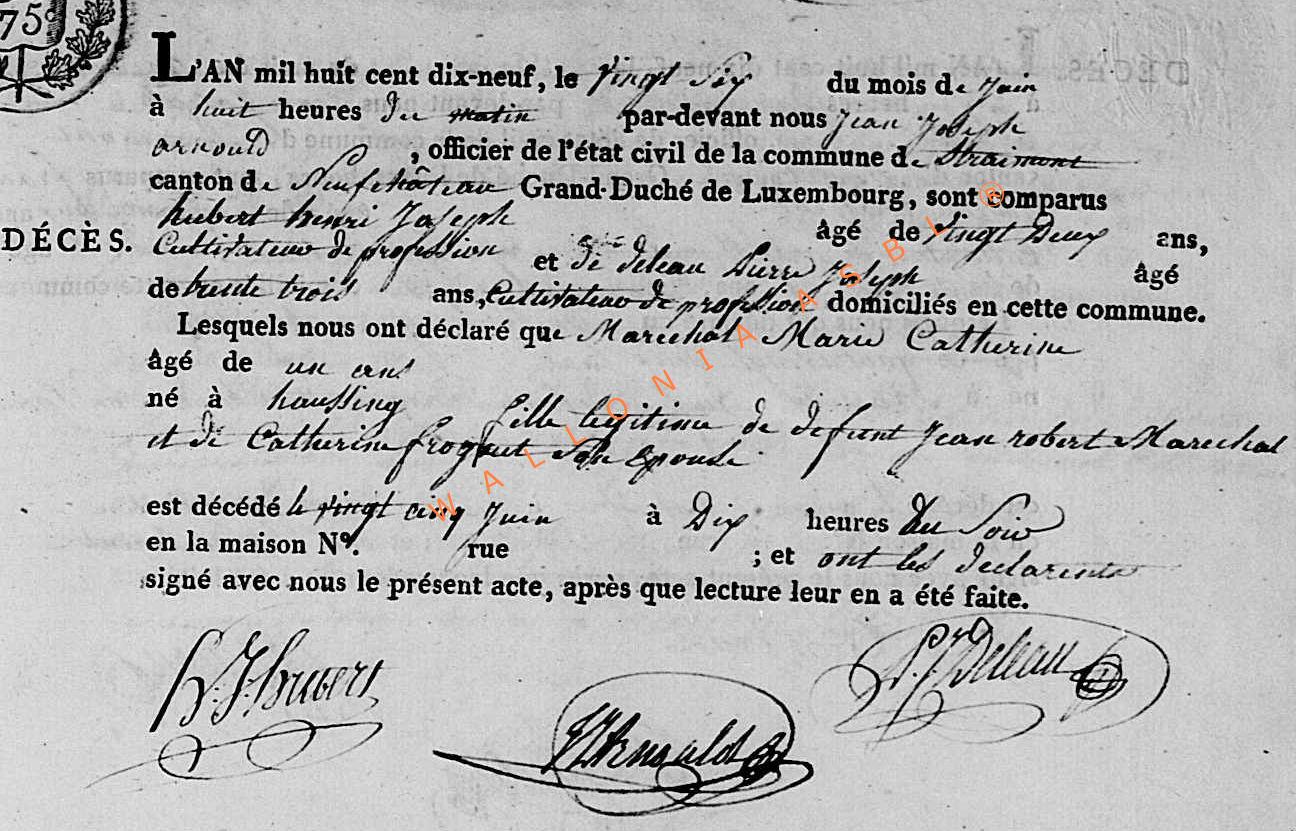 75
L'AN mil huit cent dix-neuf, le vingt Six du mois de Juin
à huit heures du matin par-devant nous Jean Joseph
arnould, officier de l'état civil de la commune de Straimont
canton de Neufchâteau Grand-Duché de Luxembourg, sont comparus
hubert henri Joseph âgé de vingt Deux ans,
DÉCÈS. Cultivateur de profession et de deleau Pierre Joseph âgé
de trente trois ans, Cultivateur de profession domiciliés en cette commune.
Lesquels nous ont déclaré que Marechal Marie Catherine
âgé de un ans
né à haussing fille legitime de defunt Jean robert Marechal
et de Catherine frogeut Son Epouse
est décédé le vingt cinq Juin à Dix heures du Soir
en la maison N°. rue ; et ont les declarents
signé avec nous le présent acte, après que lecture leur en a été faite.
h. J. hubert
P. J. Deleau
JJ Arnould
WALLONIA ASBL ®